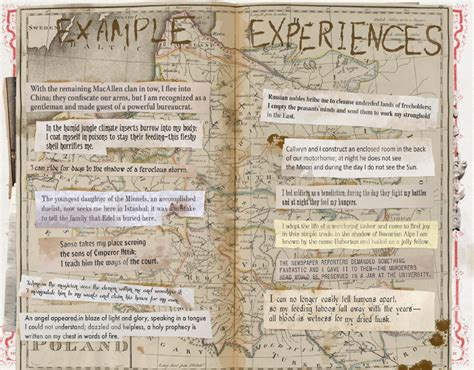 EXAMPLE EXPERIENCES
SWEDEN
BALTIC
With the remaining MacAllen clan in tow, I flee into
China; they confiscate our arms, but I am recognized as a
gentleman and made guest of a powerful bureaucrat.
In the humid jungle climate insects burrow into my body;
I coat myself in poisons to stay their feeding–this fleshy
shell horrifies me.
I can ride for days in the shadow of a ferocious storm.
The youngest daughter of the Minnels, an accomplished
duelist, now seeks me here in Istanbul; it was I
to tell the family that Edel is buried here.
Sanso takes my place serving
the sons of Emperor Attik;
I teach him the ways of the court.
the
manipulate him to my wants and claim his house for my own.
An angel appeared in blaze of light and glory, speaking in a tongue
I could not understand; dazzled and helpless, a holy prophecy is
written on my chest in words of fire.
POLAND
Russian nobles bribe me to cleanse undzerled lands of freeholders;
I empty the peasants minds and send them to work my stronghold
in the East.
Callwyn and I construct an enclosed room in the back
of our motorhome; at night he does not see
the Moon and during the day I do not see the Sun.
I led military as a benediction; during the day they fight my battles
and at night they feed my hungers.
I adopt the life of a wandering tinker and come to find joy
in this simple trade in the shadow of Bavarian Alps I am
known by the name Hubertus and hailed as a jolly fellow.
THE NEWSPAPER REPORTERS DEMANDED SOMETHING
FANTASTIC AND I GAVE IT TO THEM–THE MURDERERS
HEAD WOULD BE PRESERVED IN A JAR AT THE UNIVERSITY.
I can no longer easily tell humans apart,
so my feeding taboos fall away with the years—
all blood is wetness for my dried husk.